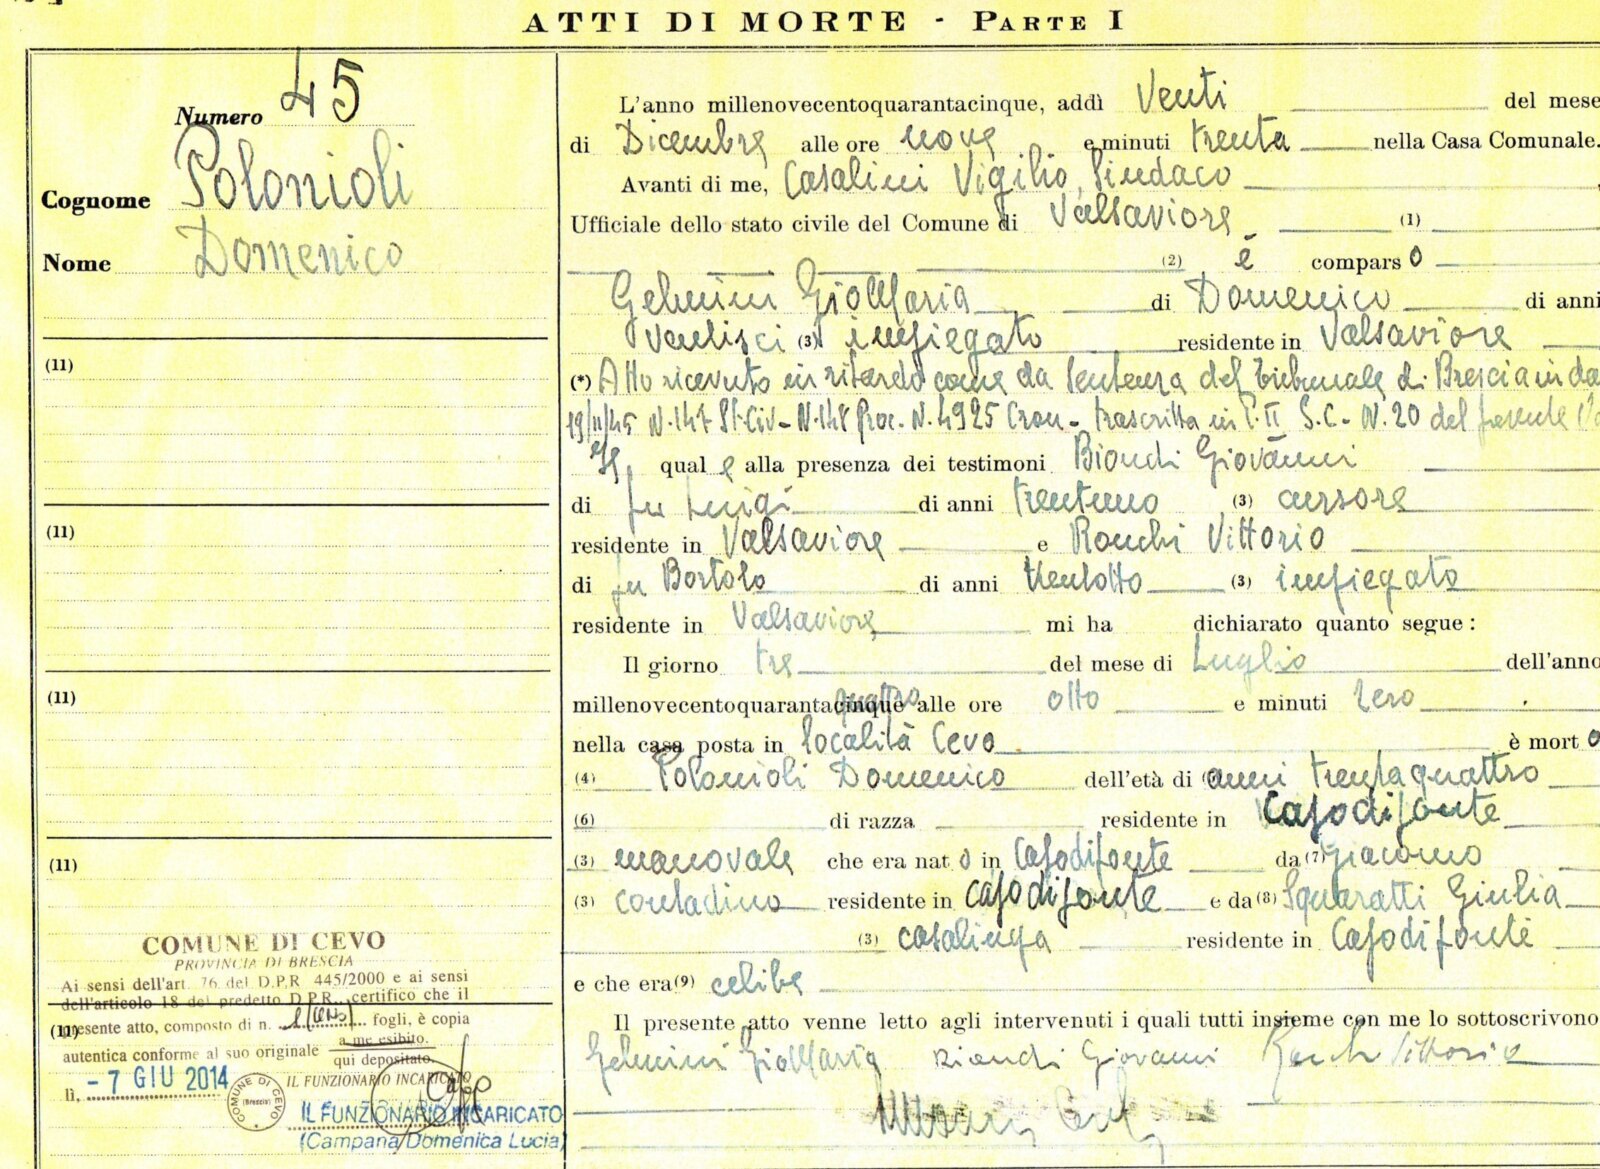 ATTI DI MORTE - PARTE I
Numero 45
Cognome Polonioli
Nome Domenico
(11)
(11)
(11)
(11)
(11)
COMUNE DI CEVO
PROVINCIA DI BRESCIA
Ai sensi dell'art. 76 del D.P.R 445/2000 e ai sensi
dell'articolo 18 del predetto D.P.R., certifico che il
presente atto, composto di n. 1 (uno) fogli, è copia
autentica conforme al suo originale a me esibito.
qui depositato.
lì, - 7 GIU 2014
IL FUNZIONARIO INCARICATO
COMUNE DI CEVO (Brescia)
IL FUNZIONARIO INCARICATO
(Campana Domenica Lucia)
L'anno millenovecentoquarantacinque, addì Venti del mese
di Dicembre alle ore nove e minuti trenta nella Casa Comunale.
Avanti di me, Casalini Vigilio, Sindaco
Ufficiale dello stato civile del Comune di Valsaviore (1)
(2) è comparso
Gelmini GioMaria di Domenico di anni
(3) impiegato residente in Valsaviore
(*) Atto ricevuto in ritardo come da Sentenza del Tribunale di Brescia in da
19/11/45 N. 147 St. Civ - N. 148 Proc. N. 4925 Cron - trascritta in P. II S.C. - N. 20 del
Il quale alla presenza dei testimoni Biondi Giovanni
di fu Luigi di anni trentuno (3) cursore
residente in Valsaviore e Ronchi Vittorio
di fu Bortolo di anni (3) impiegato
residente in Valsaviore mi ha dichiarato quanto segue:
Il giorno tre del mese di Luglio dell'anno
millenovecentoquarantacinque quattro alle ore otto e minuti zero
nella casa posta in località Cevo è morto
(4) Polonioli Domenico dell'età di anni trentaquattro
(6) di razza residente in Capodiponte
(3) manovale che era nato in Capodiponte da (7) Giacomo
(3) contadino residente in Capodiponte e da (8) Squaratti Giulia
(3) casalinga residente in Capodiponte
e che era (9) celibe
Il presente atto venne letto agli intervenuti i quali tutti insieme con me lo sottoscrivono
Gelmini GioMaria Biondi Giovanni Ronchi Vittorio